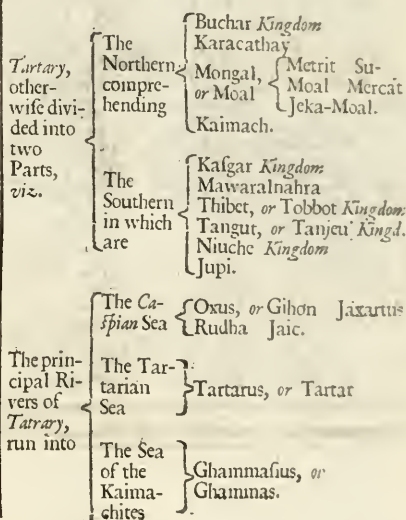 Tartary, otherwiſe divided into two Parts, viz.
The Northern comprehending
Buchar Kingdom
Karacathay
Mongal, or Moal
Metrit Su-
Moal Mercat
Jeka-Moal.
Kaimach.
The Southern in which are
Kaſgar Kingdom
Mawaralnahra
Thibet, or Tobbot Kingdom
Tangut, or Tanjeu Kingd.
Niuche Kingdom
Jupi.
The principal Rivers of Tatrary, run into
The Caſpian Sea
Oxus, or Gihon Jaxartus
Rudha Jaic.
The Tartarian Sea
Tartarus, or Tartar
The Sea of the Kaimachites
Ghammaſius, or
Ghammas.